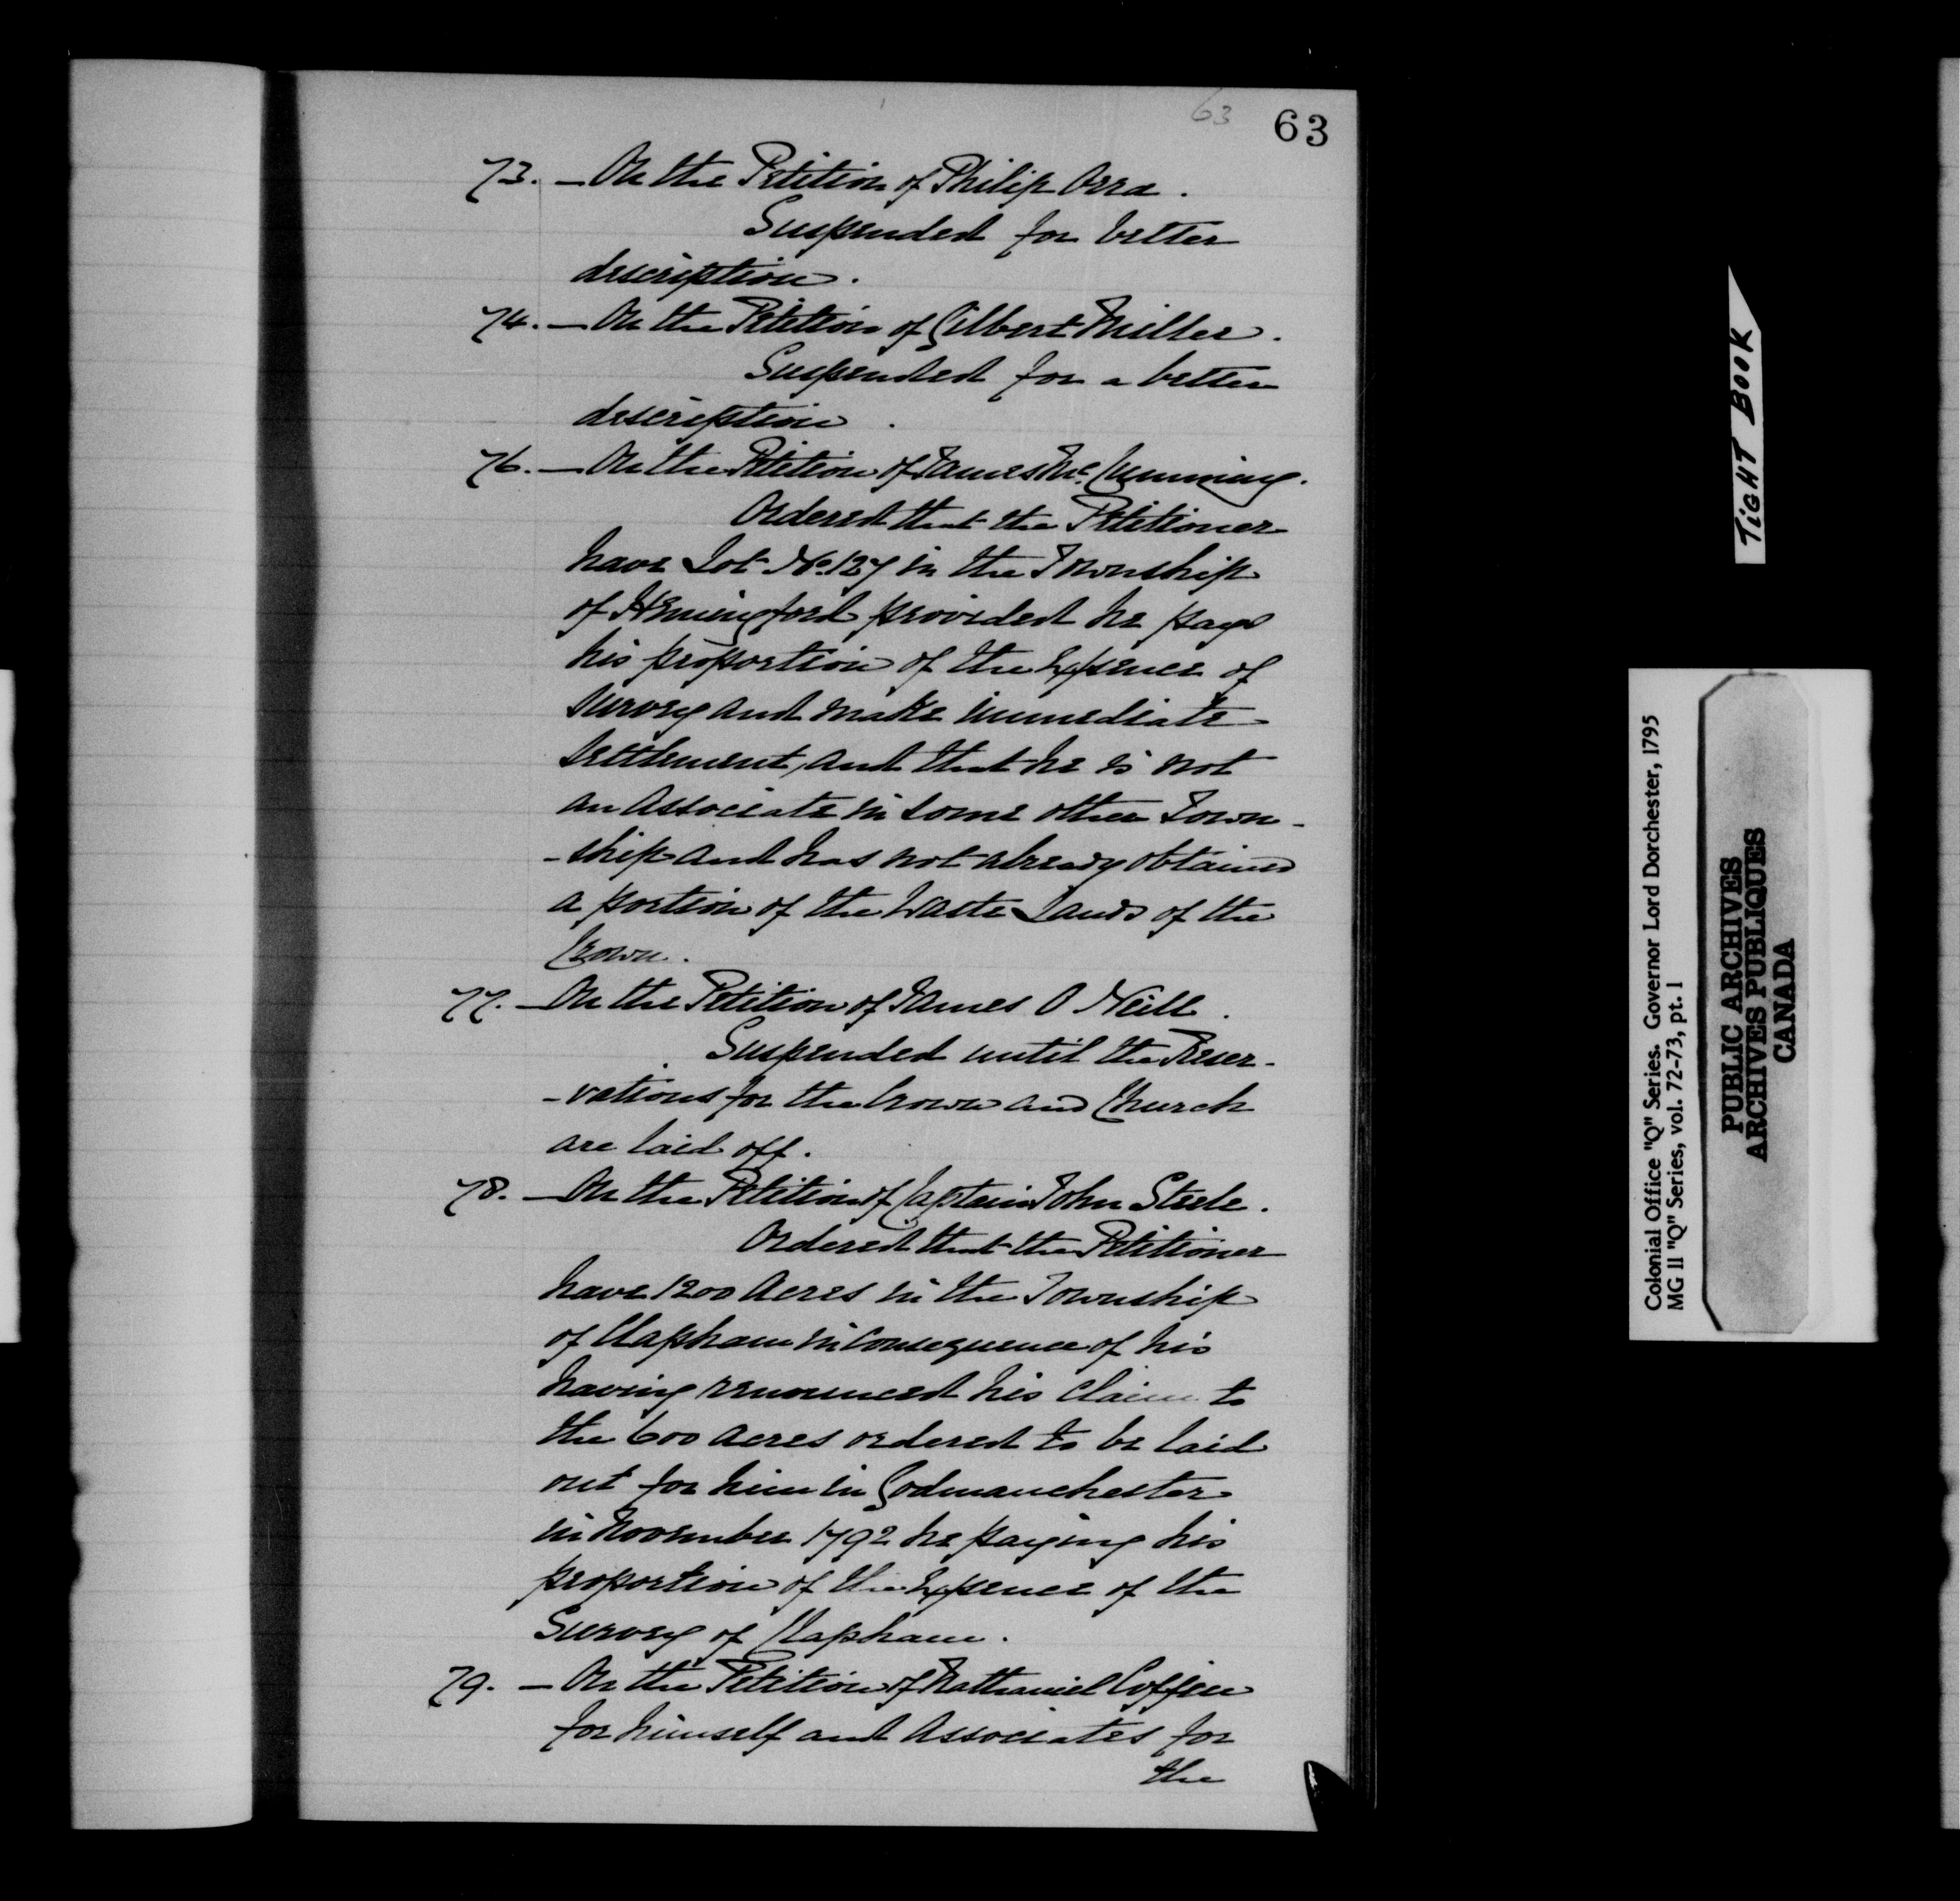 63
63
73. - On the Petition of Philip Orra.
Suspended for better
description.
74. - On the Petition of Gilbert Miller.
Suspended for a better
description.
76. - On the Petition of James Mc. Cumming.
Ordered that the Petitioner
have Lot No. 127 in the Township
of Hemingford provided he pays
his proportion of the Expence of
survey and make immediate
settlement, and that he is not
an associate in some other Town-
-ship and has not already obtained
a portion of the Waste Lands of the
Crown.
77. - On the Petition of James O Neill.
Suspended until the Reser-
-vations for the Crown and Church
are laid off.
78. - On the Petition of Captain John Steele.
Ordered that the Petitioner
have 1200 Acres in the Township
of Clapham in consequence of his
having renounced his claim to
the 600 acres ordered to be laid
out for him in Godmanchester
in November 1792 he paying his
proportion of the Expence of the
Survey of Clapham.
79. - On the Petition of Nathaniel Coffin
for himself and Associates for
the
TIGHT BOOK
Colonial Office "Q" Series. Governor Lord Dorchester, 1795
MG 11 "Q" Series, vol. 72-73, pt. 1
PUBLIC ARCHIVES
ARCHIVES PUBLIQUES
CANADA